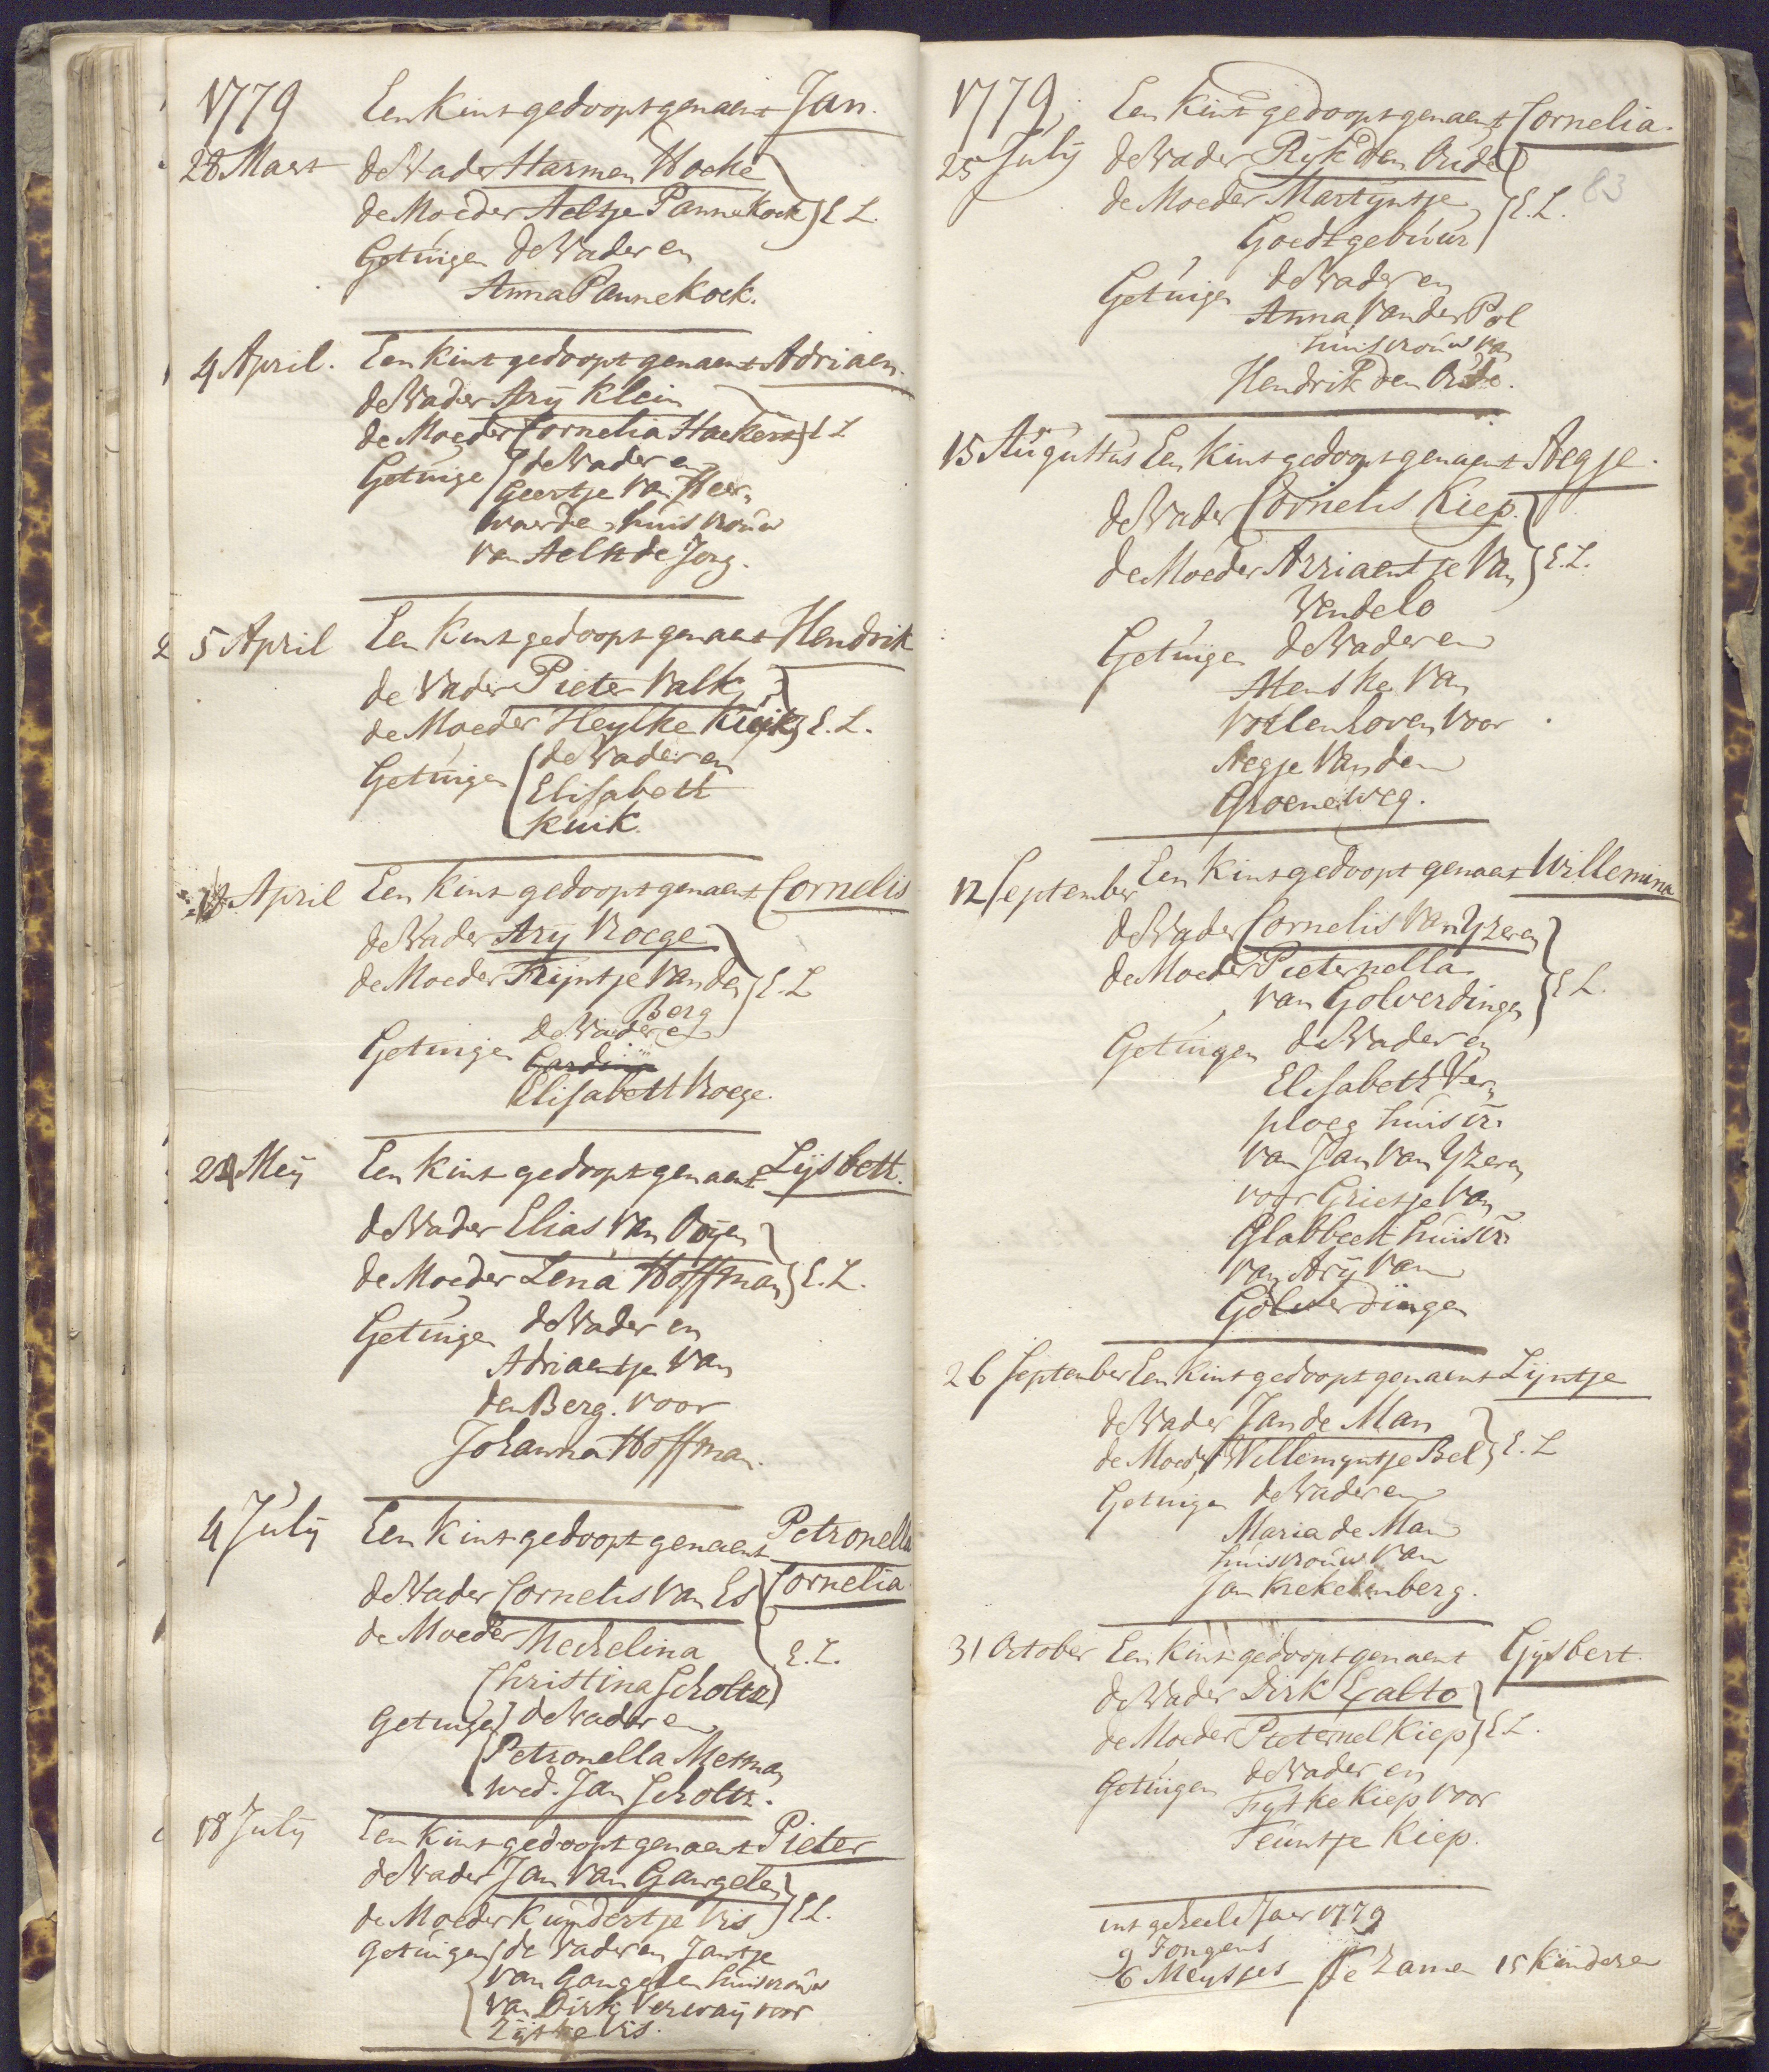 1779 Een Kint gedoopt genaent Jan.
28 Maert de Vader Harmen Hoeke
de Moeder Aeltje Pannekoek } E L.
Getuigen de Vader en
Anna Pannekoek.
4 April. Een Kint gedoopt genaent Adriaen.
de Vader Arij Klein
de Moeder Cornelia Haekert } E L
Getuige de Vader en
Geertje van Heer„
waarde huisvrouw
van Aelst de Jong.
2 5 April Een Kint gedoopt genaent Hendrik
de Vader Pieter Valk
de Moeder Heylke Kuik } E. L.
Getuigen de Vader en
Elisabeth
Kuik.
18 April Een Kint gedoopt genaent Cornelis
de Vader Arij Kroege
de Moeder Trijntje van de } E. L
Berg
Getuigen de Vader en
Elisabeth Kroege.
Meij Een Kint gedoopt genaent Lijsbeth.
de Vader Elias van Ooijen
de Moeder Lena Hoffman } E. L.
Getuigen de Vader en
Adriaentje van
den Berg. voor
Johanna Hoffman.
4 Julij Een Kint gedoopt genaent Petronella
de Vader Cornelis van Es Cornelia.
de Moeder Mechelina E. L.
Christina Scholtz
Getuige de Vader en
Petronella Metman
wed. Jan Scholtz.
18 Julij Een Kint gedoopt genaent Pieter
de Vader Jan van Gangelen
de Moeder Kundertje Vis } E L.
Getuigen de Vader en Jantje
van Gangelen huisvrouw
van Dirk Verwaij voor
Zijtje Vis.
1779, Een Kint gedoopt genaent Cornelia.
25 Julij de Vader Rijk den Oude
83
de Moeder Martijntje } E. L.
Goedtgebuur
Getuigen de Vader en
Anna van der Pol
huisvrouw van
Hendrik den Oude.
15 Augustus Een Kint gedoopt genaent Aegje.
de Vader Cornelis Kiep.
de Moeder Arriaentje van } E. L.
Vendelo
Getuigen de Vader en
Menske van
Vollenhoven voor
Aegje van den
Groeneweg.
12 September Een Kint gedoopt genaent Willemina
de Vader Cornelis van Yzeren
de Moeder Pieternella
van Golverdingen } E L.
Getuigen de Vader en
Elisabeth Ver„
ploeg huisvr.
van Jan van Yzeren
voor Grietje van
Glabbeek huisvr.
van Arij van
Golverdingen
26 September Een Kint gedoopt genaent Lijntje
de Vader Jan de Man
de Moeder Willemijntje Bel } E. L
Getuigen de Vader en
Maria de Man
huisvrouw van
Jan Krekelenberg.
31 October Een Kint gedoopt genaent Gijsbert.
de Vader Dirk Exalto
de Moeder Pieternel Kiep } E L.
Getuigen de Vader en
Fytke Kiep voor
Teuntje Kiep.
int geheele Jaer 1779
9 Jongens
6 Meytjes Te Zamen 15 Kinderen